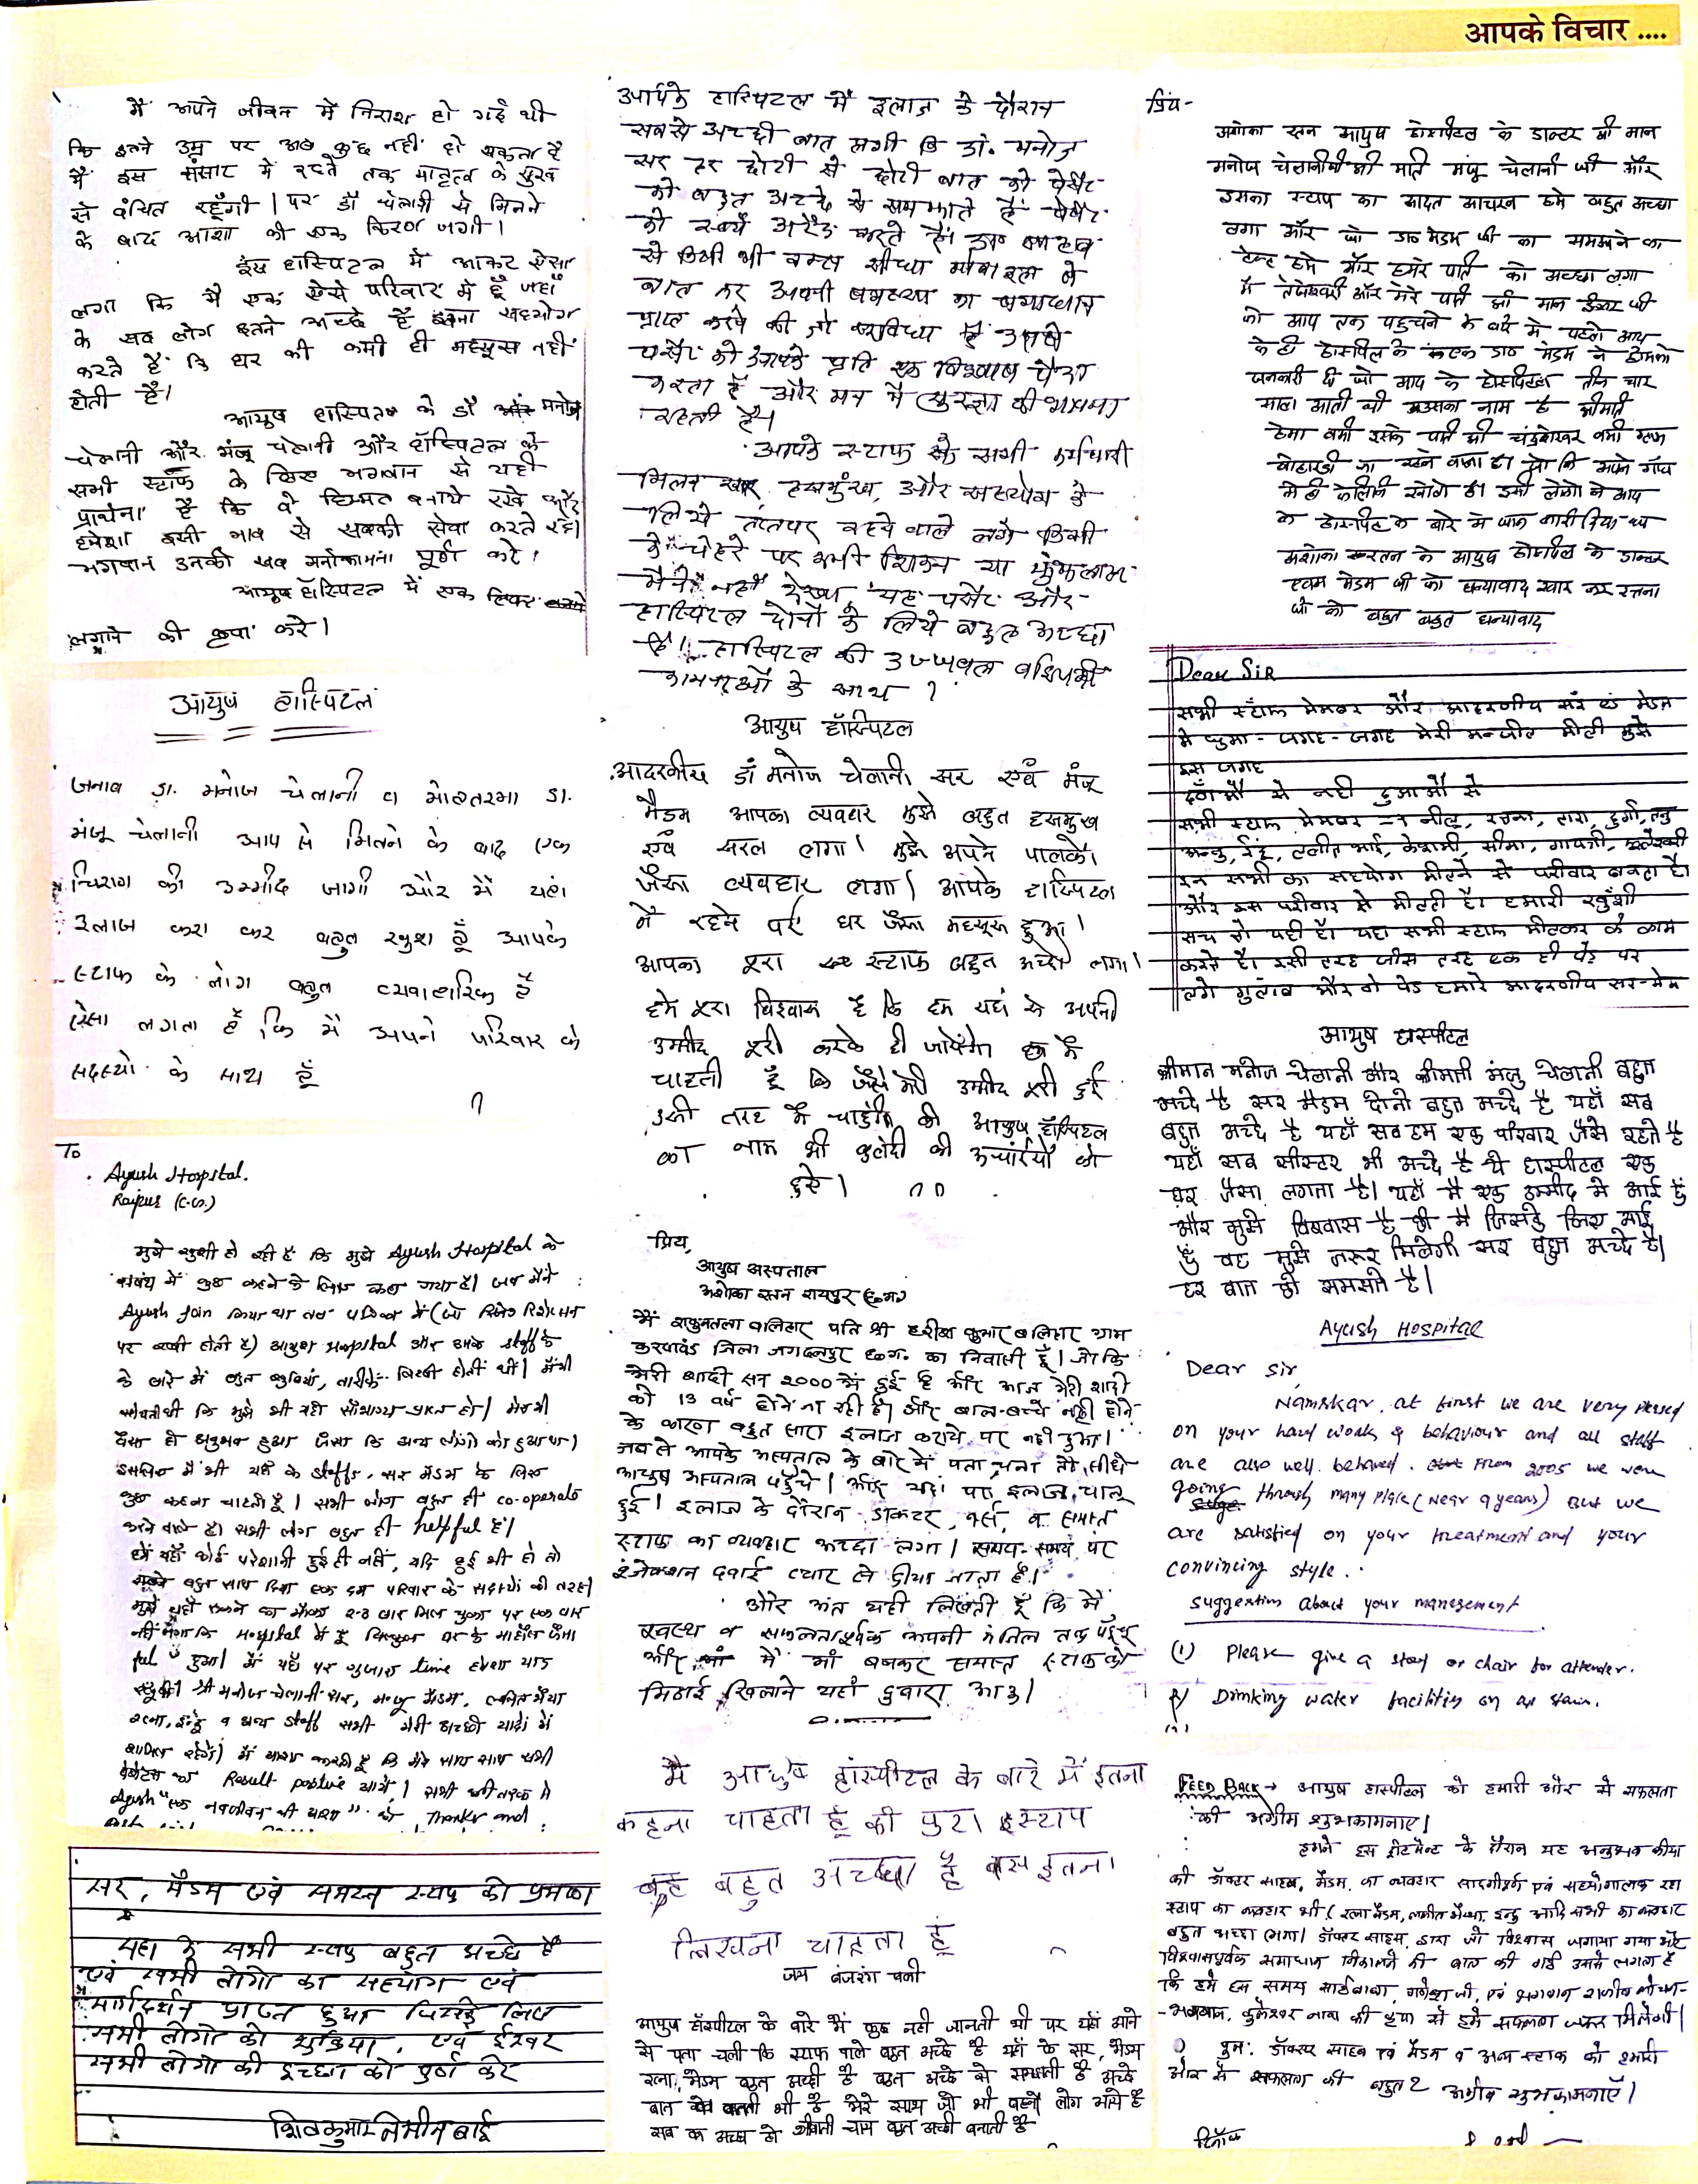 आपके विचार ....
मैं अपने जीवन में निराश हो गई थी
कि इतने उम्र पर अब कुछ नहीं हो सकता है
मैं इस संसार में रहते तक मातृत्व के सुख
से वंचित रहूँगी। पर डॉ चेलानी से मिलने
के बाद आशा की एक किरण जगी।
इस हास्पिटल में आकर ऐसा
लगा कि मैं एक ऐसे परिवार में हूँ जहाँ
के सब लोग इतने अच्छे हैं इतना सहयोग
करते हैं कि घर की कमी ही महसूस नहीं
होती है।
आयुष हास्पिटल के डॉ मनोज
चेलानी और मंजू चेलानी और हॉस्पिटल के
सभी स्टॉफ के लिए भगवान से यही
प्रार्थना है कि वे हिम्मत बनाये रखे और
हमेशा इसी भाव से सबकी सेवा करते रहे।
भगवान उनकी सब मनोकामना पूर्ण करे।
आयुष हॉस्पिटल में एक लिफ्ट
लगाने की कृपा करे।
आयुष हास्पिटल
जनाब डा. मनोज चेलानी व मोहतरमा डा.
मंजू चेलानी आप से मिलने के बाद एक
चिराग की उम्मीद जागी और मैं यहां
इलाज करा कर बहुत खुश हूँ आपके
स्टाफ के लोग बहुत व्यवाहारिक है
ऐसा लगता है कि मैं अपने परिवार के
सदस्यो के साथ हूँ
To
Ayush Hospital.
Raipur (C.G.)
मुझे खुशी हो रही है कि मुझे Ayush Hospital के
संबंध में कुछ कहने के लिए कहा गया है। जब मैंने
Ayush Join किया था तब पत्रिका में (जो रिसेप्शन
पर रखी होती है) आयुश Hospital और उसके staff के
के बारे में बहुत खुबियां, तारीफें लिखी होती थी। मैं भी
सोचती थी कि मुझे भी यही सौभाग्य प्राप्त हो। मेरा भी
वैसा ही अनुभव हुआ जैसा कि अन्य लोगो को हुआ था।
इसलिए मैं भी यहाँ के staffs, सर मैडम के लिए
कुछ कहना चाहती हूँ। सभी लोग बहुत ही co-operate
करने वाले है। सभी लोग बहुत ही helpful हैं।
हमें यहाँ कोई परेशानी हुई ही नहीं, यदि हुई भी हो तो
सबने बहुत साथ दिया एक दम परिवार के सदस्यों की तरह।
मुझे यहाँ रुकने का मौका 2-3 बार मिल चुका पर एक बार
नहीं लगा कि Hospital में हूँ बिल्कुल घर के माहौल जैसा
ful हुआ। मैं यहाँ पर गुजारा time हमेशा याद
रखूँगी। श्री मनोज चेलानी सर, मंजू मैडम, ललित भैया
रत्ना, इन्दु व अन्य staff सभी मेरी अच्छी यादों में
शामिल रहेंगे। मैं आशा करती हूँ कि मेरे साथ साथ सभी
पेशेंटस का Result positive आये। सभी की तरफ से
Ayush "एक नवजीवन की आशा" को Thanks and
सर, मैडम एवं समस्त स्टाफ को प्रणाम
यहां के सभी स्टाफ बहुत अच्छे हैं
एवं सभी लोगो का सहयोग एवं
मार्गदर्शन प्राप्त हुआ जिसके लिए
सभी लोगो को शुक्रिया, एवं ईश्वर
सभी लोगो की इच्छा को पुर्ण करे
शिवकुमार
आपके हास्पिटल में इलाज के दौरान
सबसे अच्छी बात लगी कि डॉ. मनोज
सर हर छोटी से छोटी बात को पेशेंट
को बहुत अच्छे से समझाते हैं पेशेंट
को स्वयं अटेंड करते हैं। डा० साहब
से किसी भी समय सीधा मोबाइल से
बात कर अपनी समस्या का समाधान
प्राप्त करने की जो सुविधा है उससे
पेशेंट को आपके प्रति एक विश्वास पैदा
करता है और मन में सुरक्षा की भावना
रहती है।
आपके स्टाफ के सभी कर्मचारी
मिलनसार, हसमुंख, और सहयोग के
लिये तत्पर रहने वाले लगे किसी
के चेहरे पर कभी शिकन या झुंझलाहट
मैंने नहीं देखा यह पेशेंट और
हास्पिटल दोनों के लिये बहुत अच्छा
है। हास्पिटल की उज्जवल भविष्य की
कामनाओं के साथ।
आयुष हॉस्पिटल
आदरणीय डॉ मनोज चेलानी सर एवं मंजू
मैडम आपका व्यवहार मुझे बहुत हसमुख
एवं सरल लगा। मुझे अपने पालको
जैसा व्यवहार लगा। आपके हास्पिटल
में रहने पर घर जैसा महसूस हुआ।
आपका पूरा स्टाफ बहुत अच्छा लगा।
हमे पूरा विश्वास है कि हम यहां से अपनी
उम्मीद पूरी करके ही जायेंगे। मैं
चाहती हूँ कि जैसे मेरी उम्मीद पूरी हुई
उसी तरह मैं चाहूँगी की आयुष हॉस्पिटल
का नाम भी बुलंदी की ऊचाईयों को
छुऐ।
प्रिय,
आयुष अस्पताल
अशोका रतन रायपुर (छ०ग०)
मैं शकुन्तला बालिहार पति श्री हरीश कुमार बलिहार ग्राम
करपावंड जिला जगदलपुर छ०ग. का निवासी हूँ। जो कि
मेरी शादी सन 2000 में हुई है और आज मेरी शादी
को 13 वर्ष होने जा रही है। और बाल-बच्चे नहीं होने
के कारण बहुत सारा इलाज कराये पर नहीं हुआ।
जब से आपके अस्पताल के बारे में पता चला तो सीधे
आयुष अस्पताल पहुँचे। और यहां पर इलाज चालू
हुई। इलाज के दौरान डॉक्टर, नर्स, व समस्त
स्टाफ का व्यवहार अच्छा लगा। समय-समय पर
इंजेक्शन दवाई प्यार से दीया जाता है।
और अंत यही लिखती हूँ कि मैं
स्वस्थ व सफलतापूर्वक अपनी मंजिल तक पहुँचु
और मैं माँ बनकर समस्त स्टाफ को
मिठाई खिलाने यहां दुबारा आऊं।
मै आयुष हांस्पीटल के बारे में इतना
कहना चाहता हूँ की पुरा इस्टाप
बहुत अच्छा है बस इतना
लिखना चाहता हूं
जय बंजरंग बली
आयुष हॉस्पीटल के बारे में कुछ नही जानती थी पर यहाँ आने
से पता चली कि स्टाफ वाले बहुत अच्छे है यहाँ के सर, मैडम
रत्ना, मैडम बहुत अच्छी है बहुत अच्छे से समझाती है अच्छे
बात करती भी है मेरे साथ जो भी पहले लोग आये है
सब का अच्छा हो चाय बहुत अच्छी बनाती है
प्रिय-
अशोका रतन आयुष होस्पिटल के डाक्टर श्री मान
मनोज चेलानी श्री मति मंजू चेलानी जी और
इसका स्टाप का आदत आचरन हमे बहुत अच्छा
लगा और जो डा० मेडम जी का समझाने का
हमे और हमारे पति को अच्छा लगा
मै और मेरे पति श्री मान जी
को आप तक पहुचने के बारे मे पहले आप
के ही होस्पिटल के एक डा० मेडम ने हमको
जनकारी दि जो आप के होस्पिटल तीन चार
साल आती थी उसका नाम है श्रीमति
हेमा वर्मा इसके पति श्री चंद्रशेखर वर्मा
का रहने वाला है।
के होस्पिटल के बारे मे जानकारी दिया था
अशोका रतन के आयुष होस्पिटल के डाक्टर
एवम मेडम जी को धन्यावाद रत्ना
जी को बहुत बहुत धन्यावाद
Dear Sir
सभी स्टाँफ मेमबर और आदरणीय सर एवं मेडम
मे घुमा-जगह-जगह मेरी मन्जील मीली मुझे
इस जगह
दवाँओ से नही दुआओ से
सभी स्टाफ मेमबर नीलू, रत्ना, तारा, दुर्गा,
अन्जु, इंदू, ललीत भाई, केशमी, सीमा, गायत्री,
इन सभी का सहयोग मीलने से परीवार बनता है।
और इस परीवार से मीलती है। हमारी खुँशी
सच तो यही है। यहा सभी स्टाफ मीलकर के काम
करते है। इसी तरह जीस तरह एक ही पेड पर
लगे गुलाब और वो पेड हमारे आदरणीय सर-मेम
आयुष हास्पीटल
श्रीमान मनोज चेलानी और श्रीमती मंजु चेलानी बहुत
अच्छे है सर मैडम दोनो बहुत अच्छे है यहाँ सब
बहुत अच्छे है यहाँ सब हम एक परिवार जैसे रहते है
यहाँ सब सीस्टर भी अच्छे है ये हास्पीटल एक
घर जैसा लगता है। यहाँ मै एक उम्मीद मे आई हूँ
और मुझे विश्वास है की मै जिसके लिए आई
हूँ वह मुझे जरूर मिलेगी सर बहुत अच्छे है।
हर बात को समझते है।
Ayush Hospital
Dear Sir,
Namskar, at first we are very pleased
on your hard works & behaviour and all staff
are also well behaved. From 2005 we were
going through many place (Near 9 years) But we
are satisfied on your treatment and your
convincing style.
suggestion about your management
(1) Please give a stay or chair for attender.
2) Drinking water facility on at stair.
FEED BACK → आयुष हास्पीटल को हमारी और से सफलता
की अग्रीम शुभकामनाए।
हमने इस ट्रीटमेन्ट के दौरान यह अनुभव कीया
की डॉक्टर साहब, मैडम, का व्यवहार सादगीपूर्ण एवं सहयोगात्मक रहा
स्टाप का व्यवहार भी (रत्ना मैडम, ललीत भैय्या, इन्दु आदि सभी का व्यवहार
बहुत अच्छा लगा। डॉक्टर साहब, द्वारा जो विश्वास जगाया गया और
विश्वासपूर्वक समाधान निकालने की बात की गई उससे लगता है
कि हमे इस समय साईबाबा, गणेश जी, एवं भगवान राजीव लोचन-
-भगवान, कुलेश्वर नाथ की कृपा से हमे सफलता जरूर मिलेगी।
पुन: डॉक्टर साहब एवं मैडम व अन्य स्टाफ को हमारी
और से सफलता की बहुत 2 अग्रीम शुभकामनाएँ।
दिनाँक